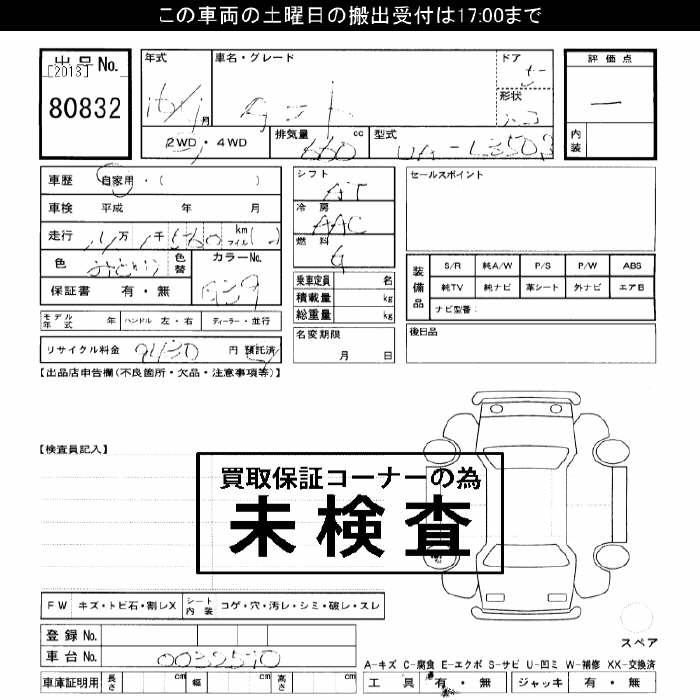 この車両の土曜日の搬出受付は17:00まで
出品No.
[2013]
80832
年式
月
車名・グレード
ドア
形状
評価点
内装
2WD・4WD
排気量 660 cc
型式 UA-L350S
車歴 自家用・( )
車検 平成 年 月
走行 万 千 km マイル( )
色
色替
カラーNo.
保証書 有・無
シフト AT
冷房 AAC
燃料 G
乗車定員 名
積載量 kg
総重量 kg
名変期限
月 日
セールスポイント
装備品
S/R 純A/W P/S P/W ABS
純TV 純ナビ 革シート 外ナビ エアB
ナビ型番:
後日品
モデル年式 年 ハンドル 左・右 ディーラー・並行
リサイクル料金 9430 円 預託済
【出品店申告欄(不良箇所・欠品・注意事項等)】
【検査員記入】
買取保証コーナーの為
未検査
FW キズ・トビ石・割レX シート内装 コゲ・穴・汚レ・シミ・破レ・スレ
登録No.
車台No. 0032570
車庫証明用 長さ cm 幅 cm 高さ cm
スペア
A-キズ C-腐食 E-エクボ S-サビ U-凹ミ W-補修 XX-交換済
工具 有・無 ジャッキ 有・無